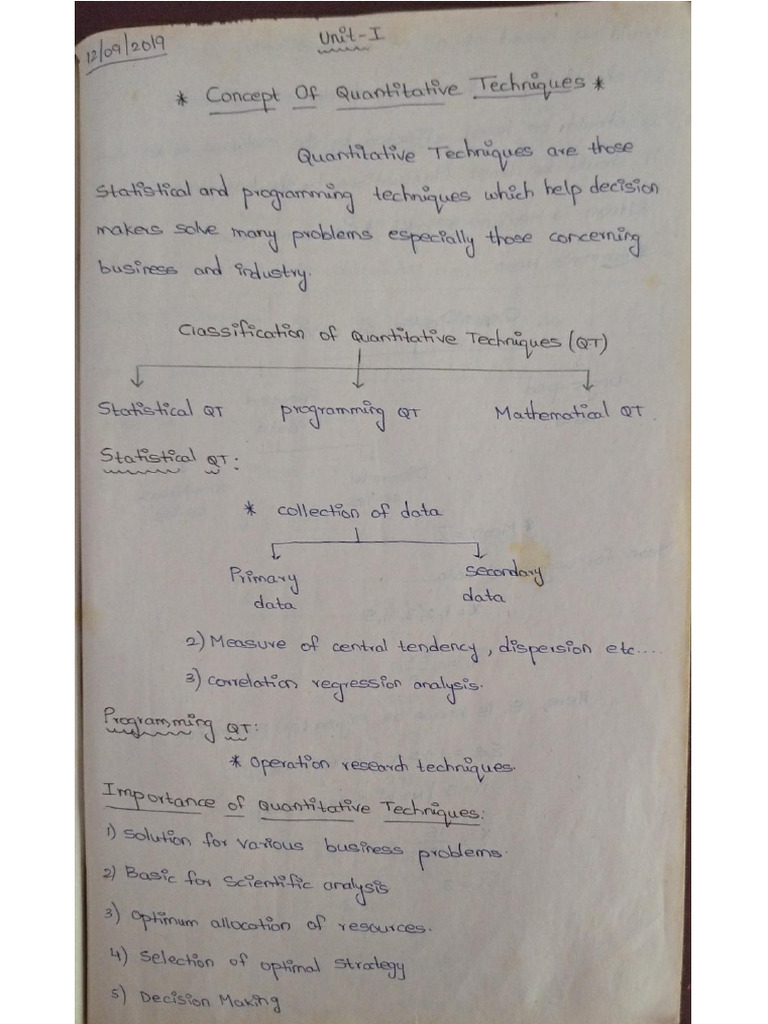 12/09/2019
Unit-I
* Concept Of Quantitative Techniques *
Quantilative Techniques are those
Statistical and programming techniques which help decision
makers solve many problems especially those concerning
business and industry.
Classification of Quantitative Techniques (QT)
Statistical QT programming QT Mathematical QT.
Statistical QT:
* collection of data
Primary secondary
data data
2) Measure of central tendency, dispersion etc....
3) correlation regression analysis.
Programming QT:
* Operation research techniques.
Importance of Quantitative Techniques:
1) Solution for various business problems.
2) Basic for scientific analysis
3) optimum allocation of resources.
4) selection of optimal strategy
5) Decision Making